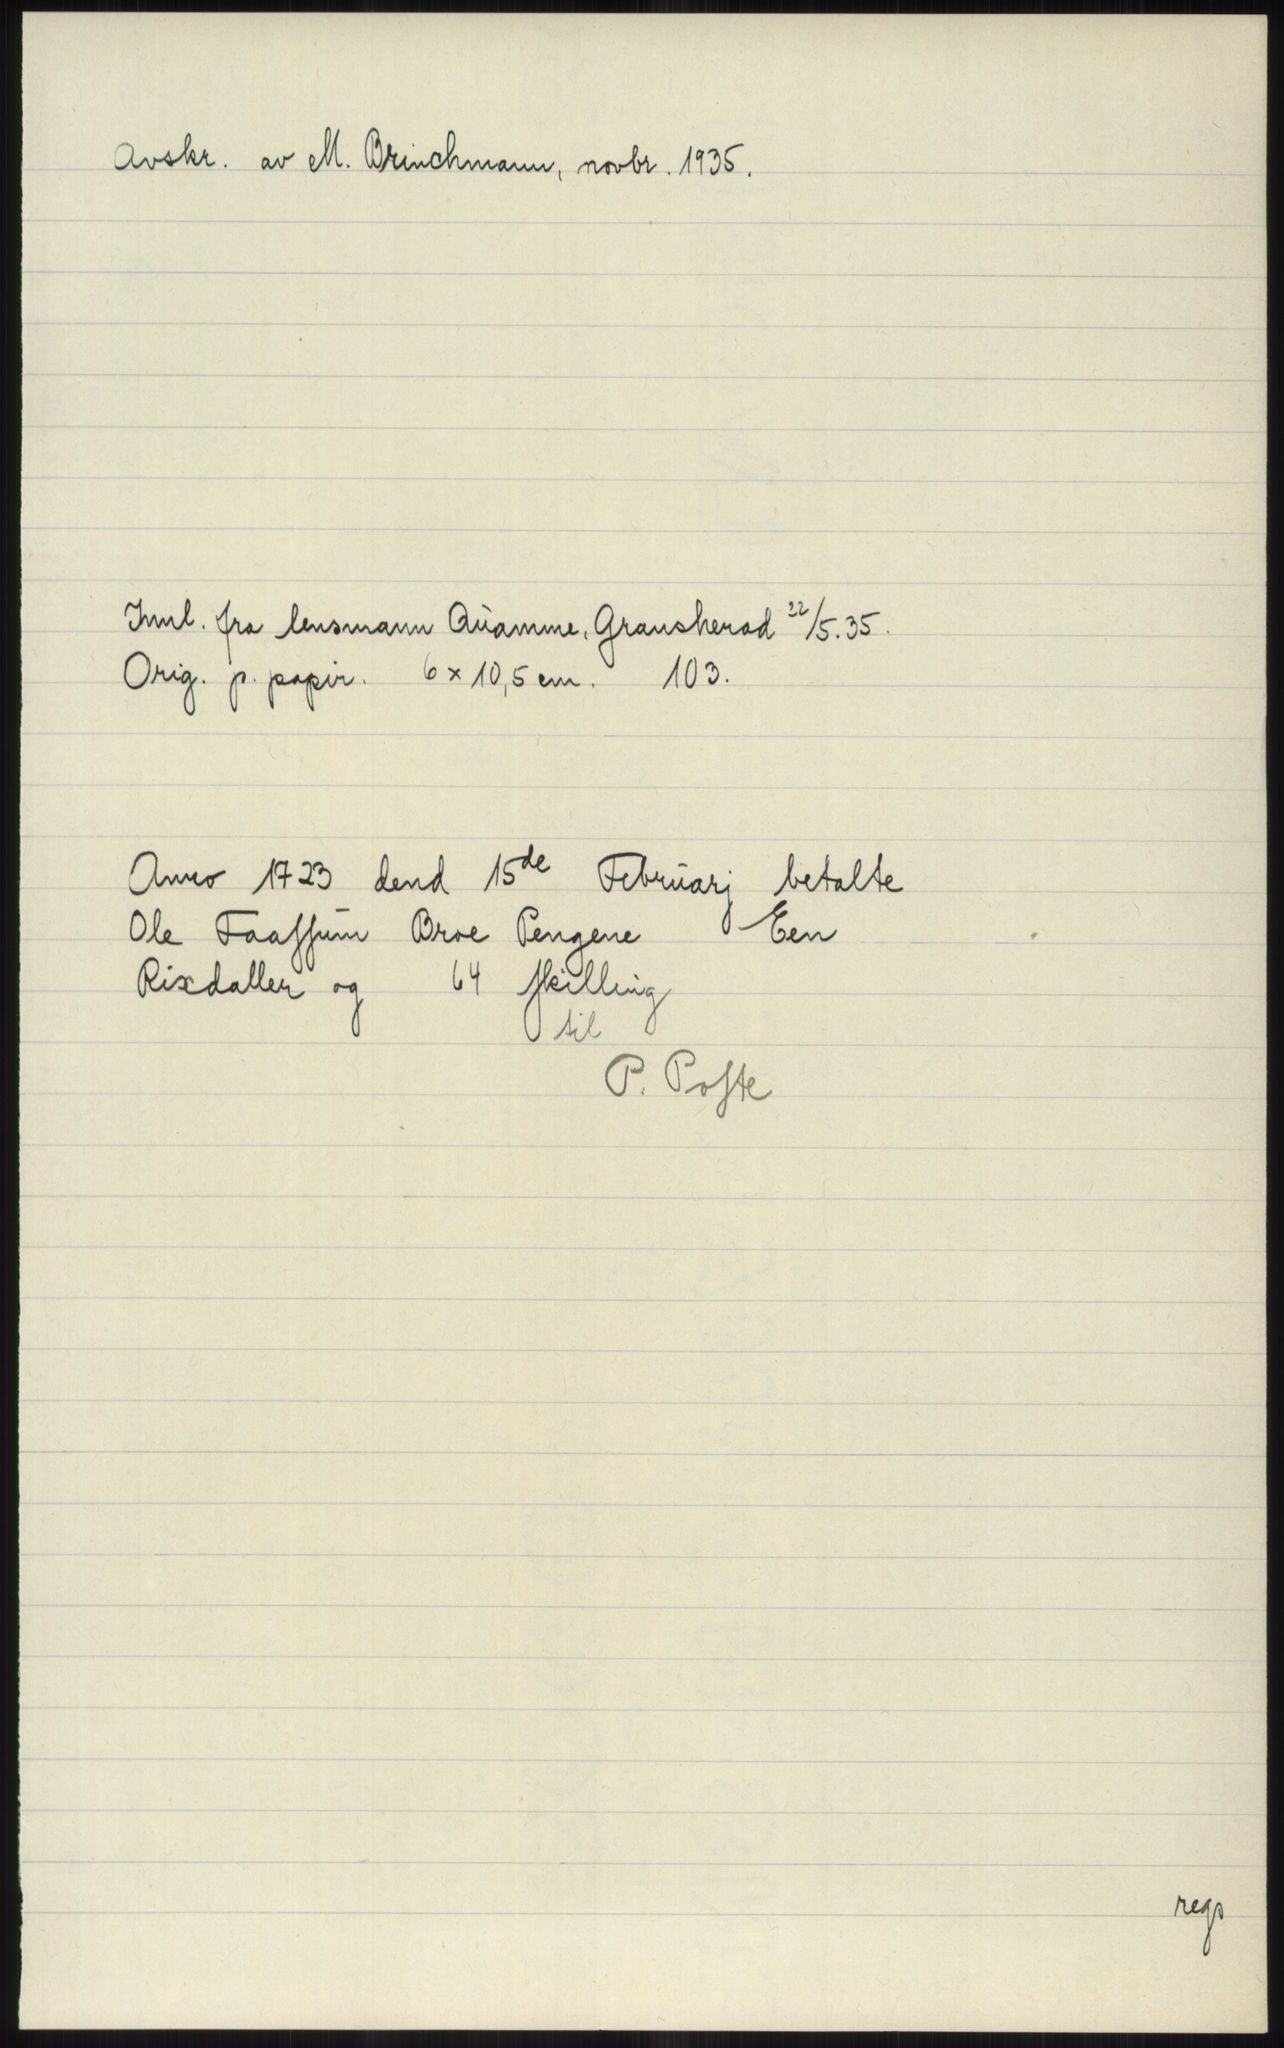 Avskr. av M. Brinchmann, novbr. 1935.
Innl. fra lensmann Quamme, Gransherad 22/5.35.
Orig. p. papir. 6 x 10,5 cm. 103.
Anno 1723 dend 15de Februarj betalte
Ole Faassum Broe Pengene Een
Rixdaller og 64 skilling
til
P. Poste